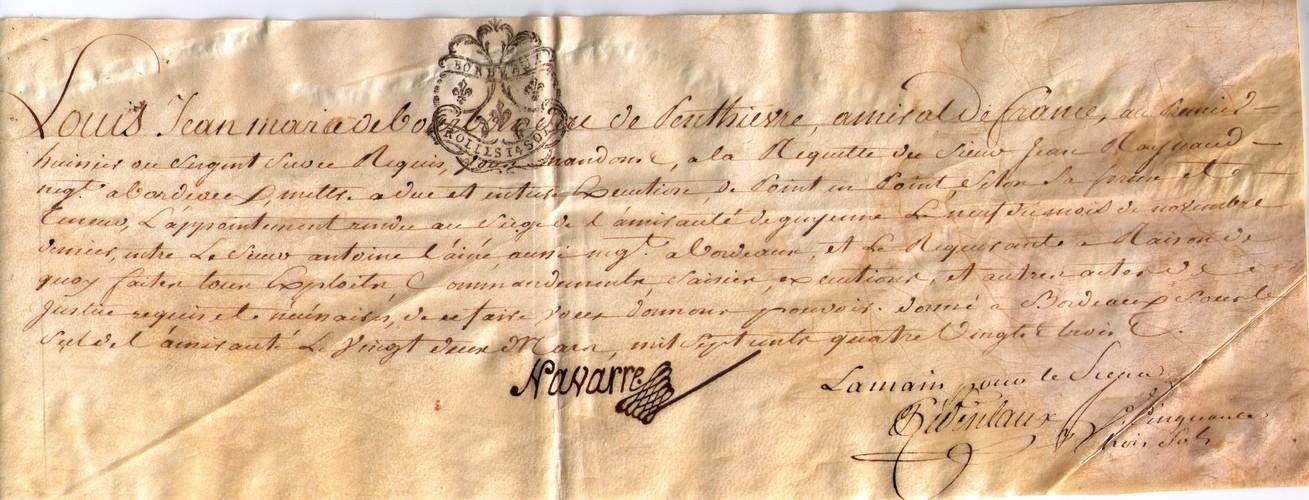 BORDEAUX
ROLLES 14 SOLS
Louis Jean marie de Bourbon Duc de Penthievre, amiral de france, au Premier
huissier ou Sergent Sur ce Requis, vous mandons, a la Requette du Sieur Jean Raynaud
negt. a bordeaux, mettre a due et entiere Execution, de Point en Point Selon Sa forme et
teneur, L'appointement rendu au Siege de l'amirauté de guyenne Le neuf du mois de novembre
dernier, entre Le Sieur antoine l'ainé, aussi negt. a bordeaux, et Le Requerant a Raison de
quoy faites tous Exploits, Commandements, Saisies, executions, et autres actes de
Justice requis et necessaires, de ce faire vous donnons pouvoir. donné a Bordeaux Sous le
Scel de l'amirauté Le Vingt deux Mars, mil Sept cents quatre Vingts trois
Navarre
Lamain pour le Sceau
Cinquante
trois Sols